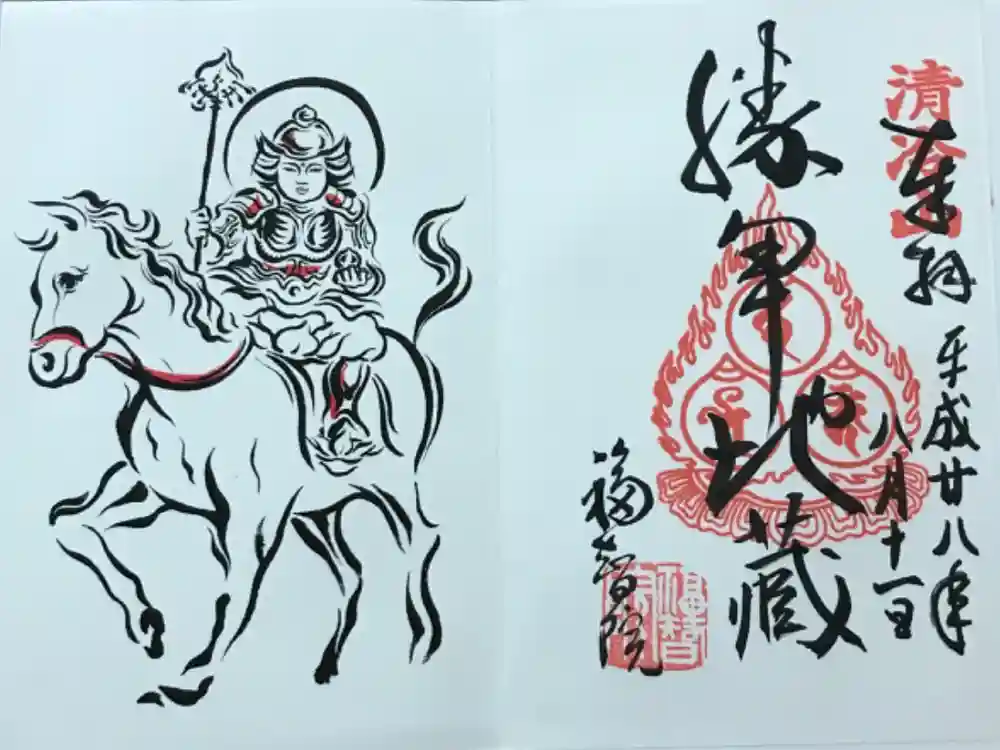 奉拝
平成廿八年
八月十一日
勝軍地蔵
福智院
福智院印